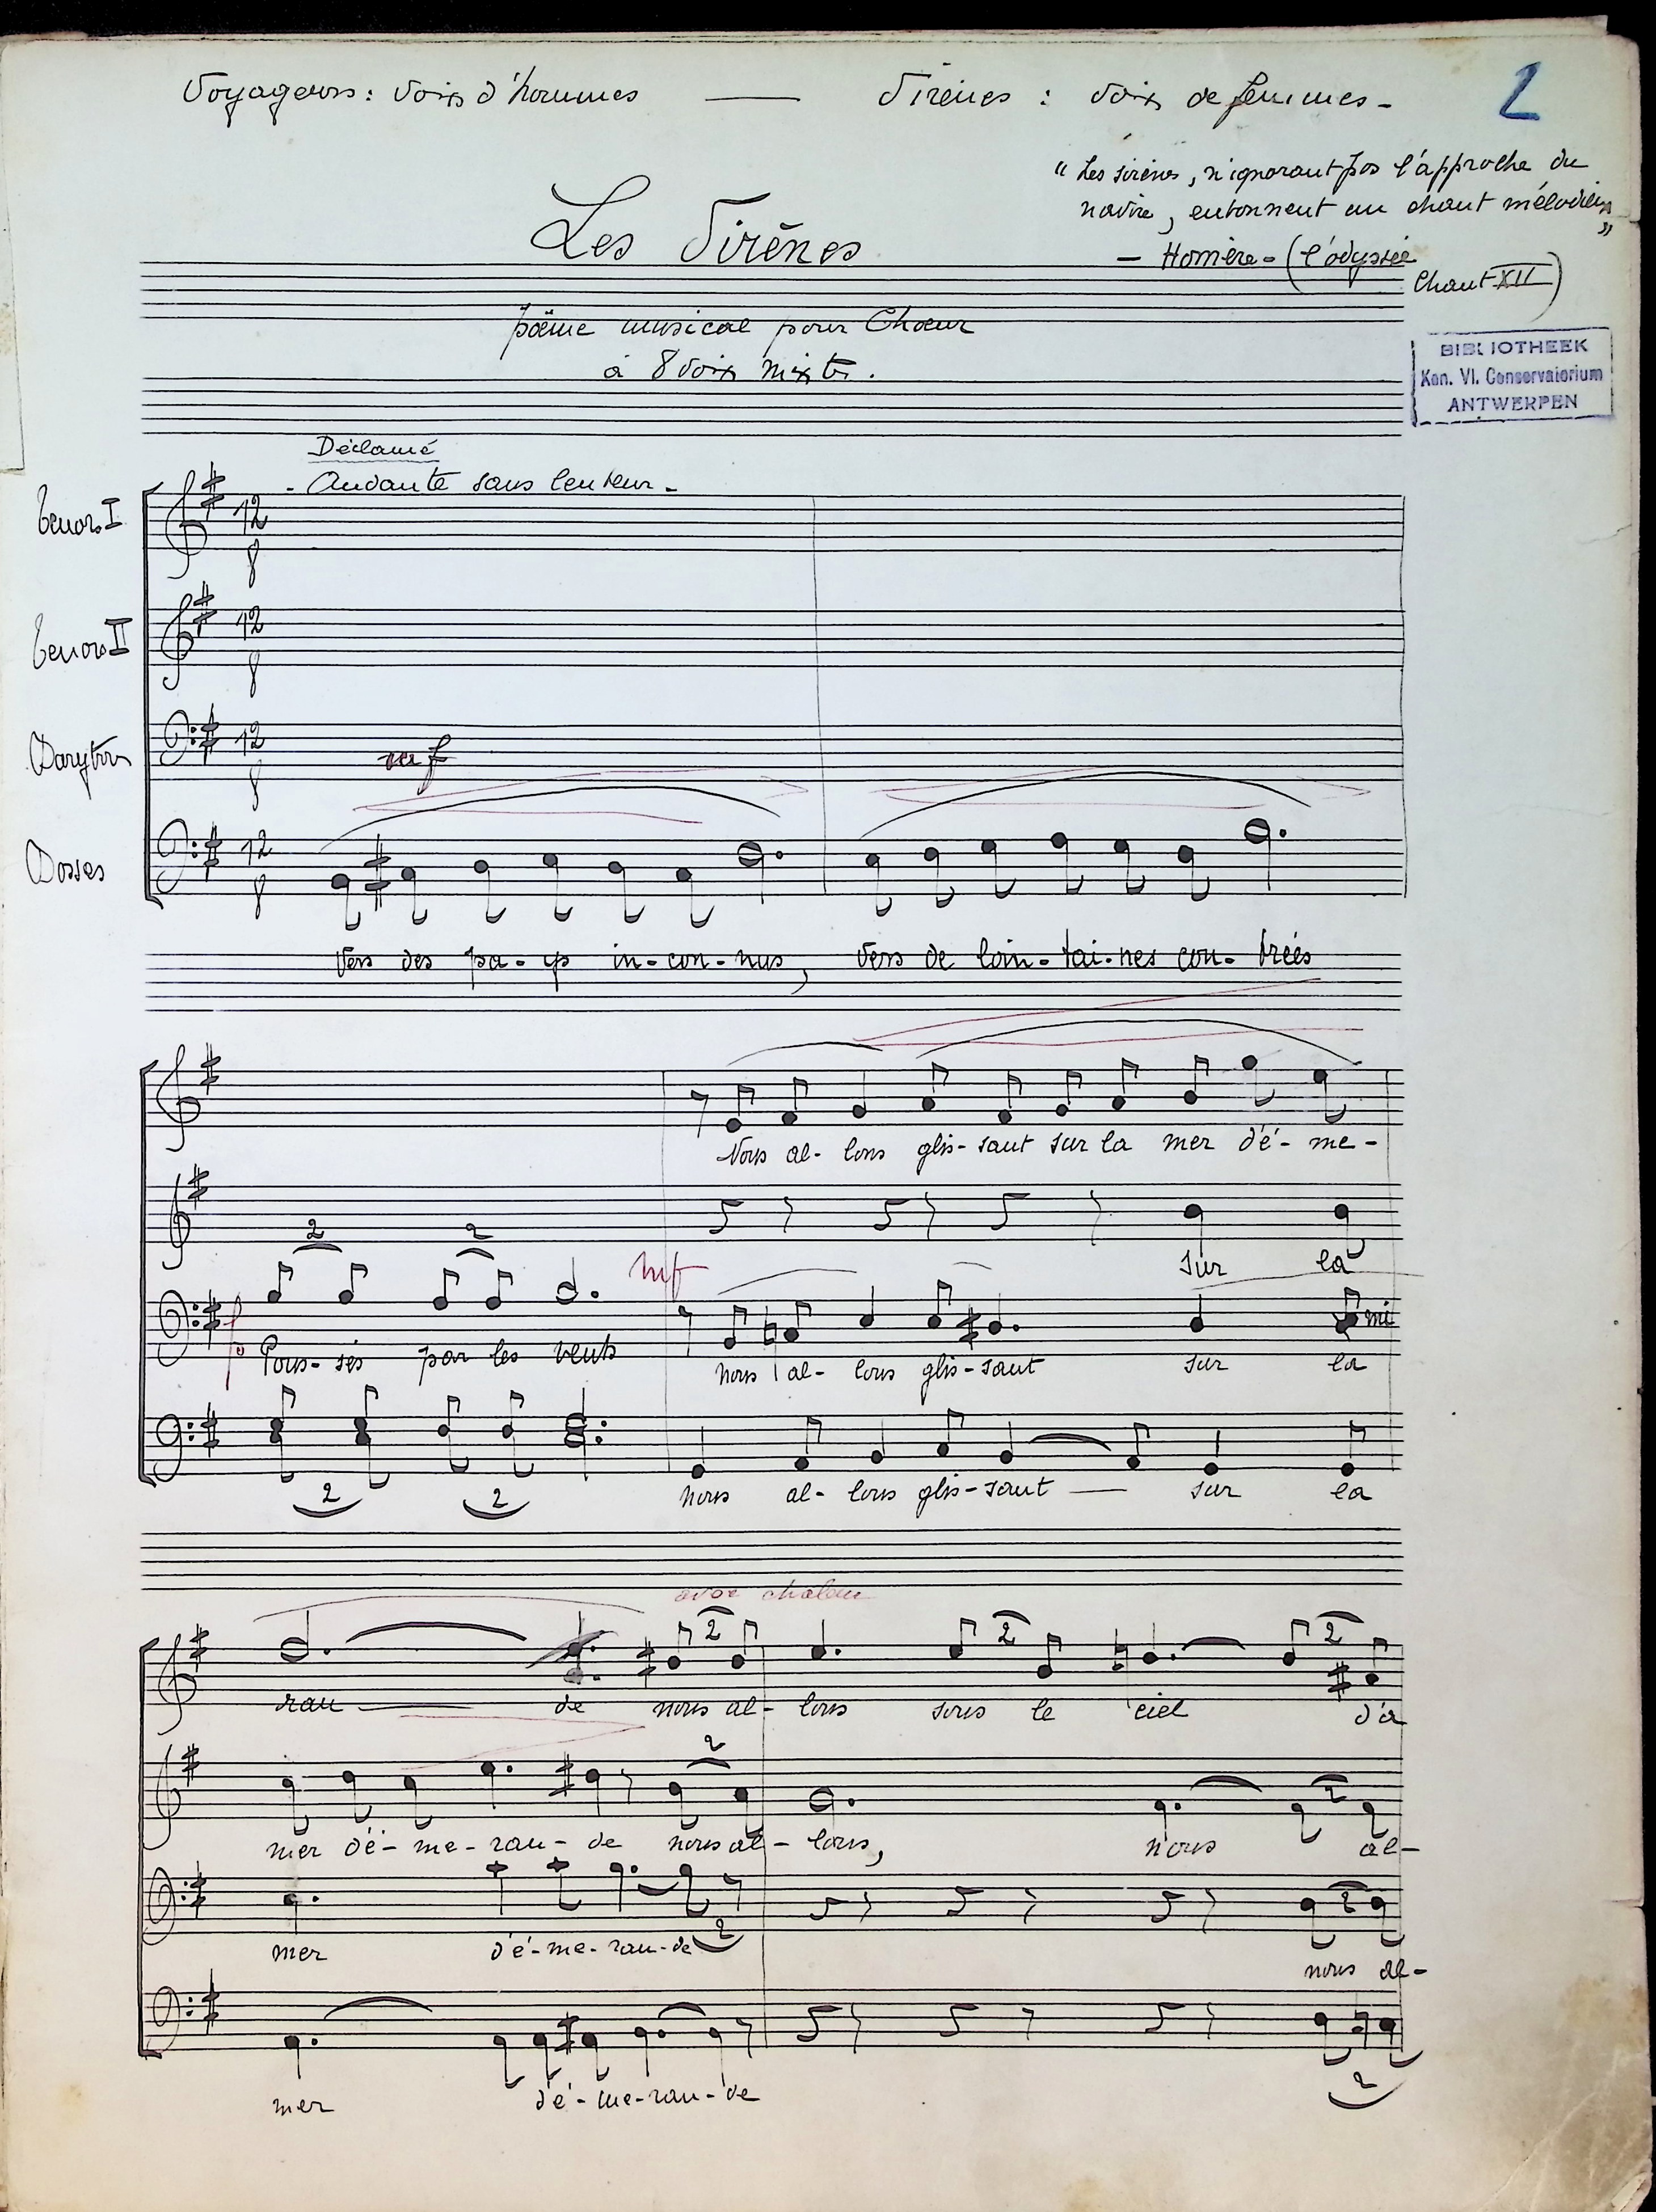 Voyageurs : Voix d'hommes — Sirènes : Voix de femmes -
2
" Les sirènes, n'ignorant pas l'approche du
navire, entonnent un chant mélodieux "
— Homère - (l'odyssée
Chant XII)
Les Sirènes
poëme musical pour Choeur
à 8 voix mixtes.
BIBLIOTHEEK
Kon. Vl. Conservatorium
ANTWERPEN
Déclamé
- Andante sans lenteur -
Tenors I 12 8
Tenors II 12 8
Barytons 12 8
mf
Basses 12 8
Vers des pa-ys in-con-nus, vers de loin-tai-nes con-trées
Nous al-lons glis-sant sur la mer d'é-me-
2 2
sur la
f mf mi
Pous-sés par les vents nous al-lons glis-sant sur la
2 2
nous al-lons glis-sant — sur la
avec chaleur
2 2 2
rau — de nous al-lons sous le ciel d'a
2 2
mer d'é-me-rau-de nous al-lons, nous al-
2 2
mer d'é-me-rau-de nous al-
2
mer d'é-me-rau-de